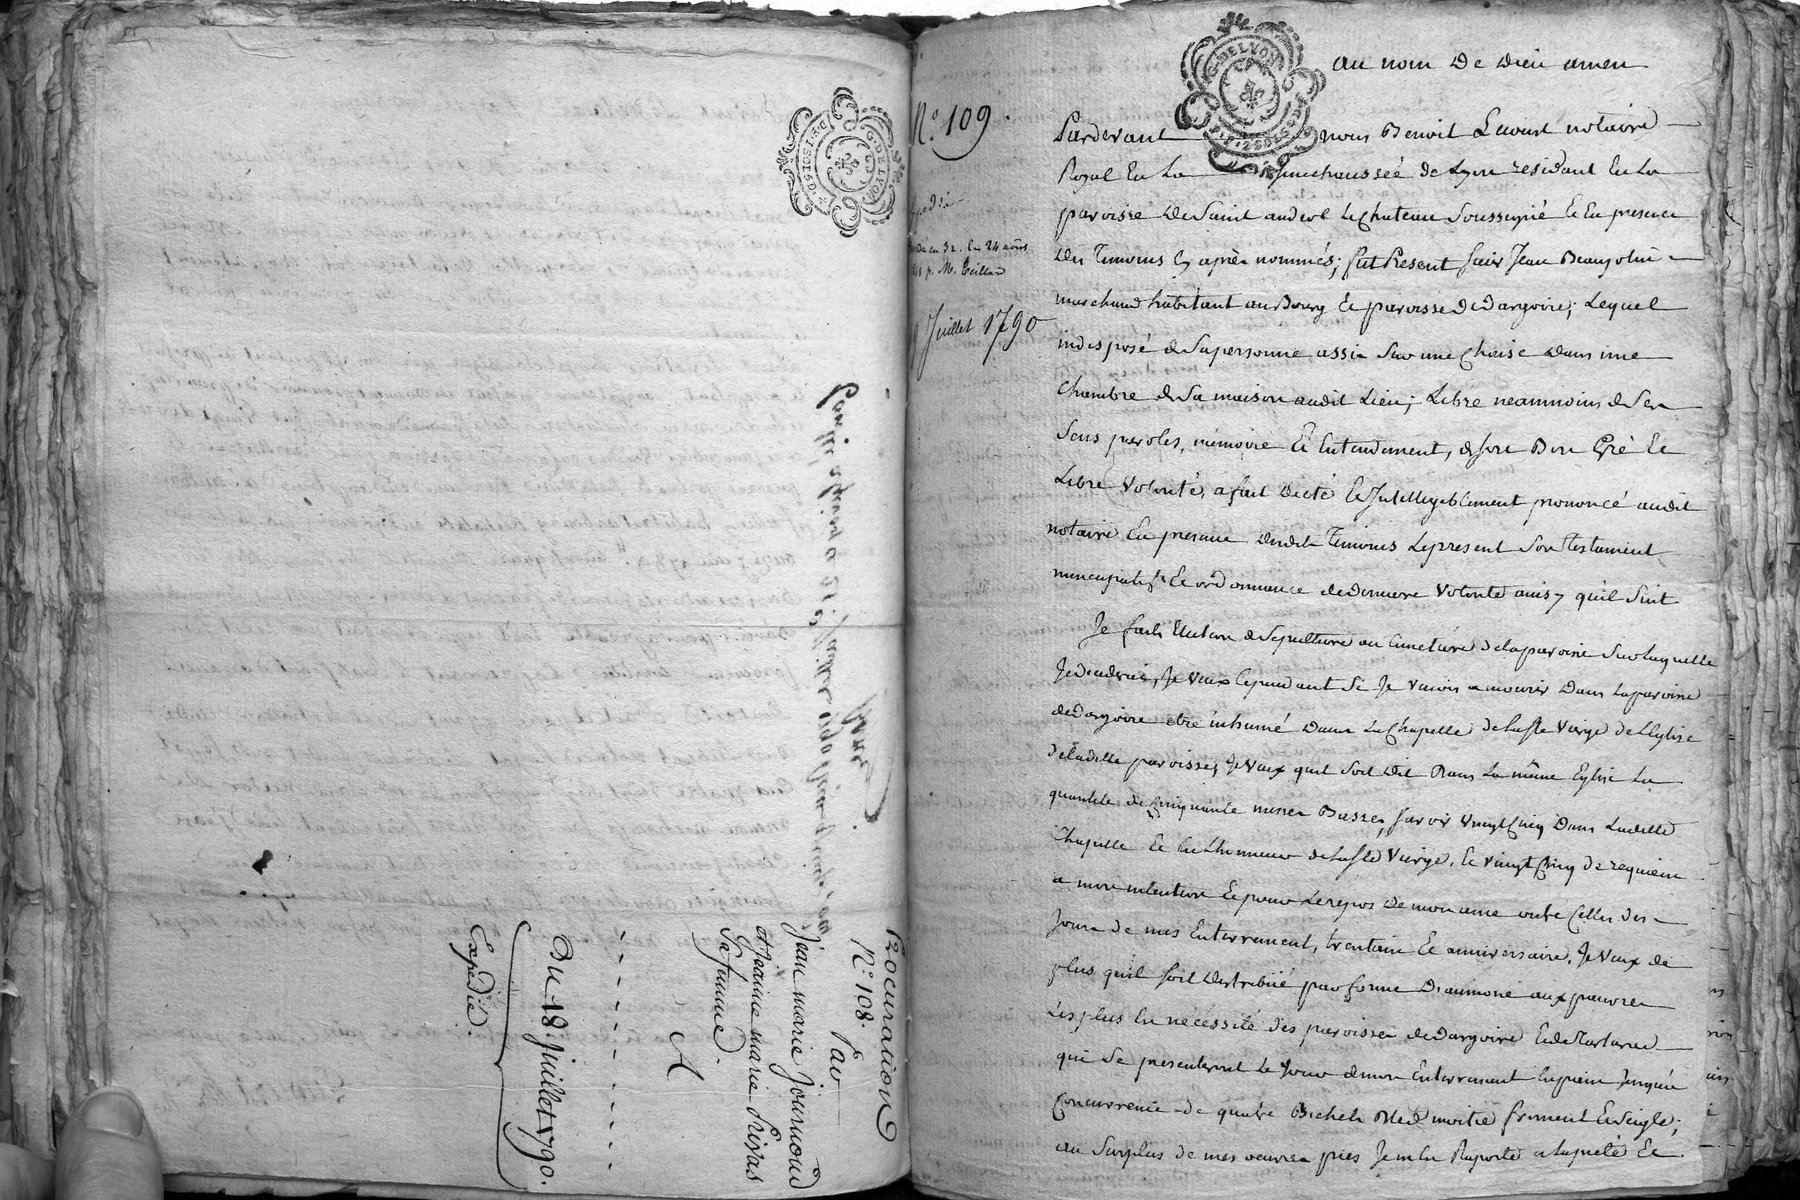 Procuration
N.° 108.
Par
Jean marie Journoud
et Jeanne marie Privas
Sa femme.
A
Du 18. Juillet 1790.
Expédié.
G. DE LYON
N.° 109
9 Juillet 1790
G. DE LYON
au nom De Dieu amen
Pardevant nous Benoit Lavoust notaire
Royal En La Senechaussée de Lyon residant En La
paroisse De Saint andeol Le Chateau Soussigné Et En presence
Des Temoins Cy après nommés; fut Present Sieur Jean Beaujolin
marchand habitant au Bourg Et paroisse de Dargoire; Lequel
indisposé de Sa personne assis Sur une Chaise Dans une
Chambre de Sa maison audit Lieu; Libre neammoins de Ses
Sens paroles, mémoire Et Entendement, de Son Bon Gré Et
Libre Volonté, a fait Dicté Et Intelligiblement prononcé audit
notaire En presence desdits Temoins Le present Son Testament
nuncupatif Et ordonnance de Derniere Volonté ainsy qu'il Suit
Je fais Election de Sepulture au Cimetiere de la paroisse Sur laquelle
Je Decederai, Je Veux Cependant Si Je Venois a mourir Dans la paroisse
de Dargoire etre inhumé Dans La Chapelle de la Ste Vierge de l'Eglise
de ladite paroisse; Je Veux quil Soit Dit Dans La même Eglise La
quantité de Cinquante messes Basses, Savoir Vingt Cinq Dans Ladite
Chapelle Et En Lhonneur de La Ste Vierge, Et Vingt Cinq de requiem
a mon intention Et pour Le repos De mon ame outre Celles des
Jours de mes Enterrement, trentain Et anniversaire. Je Veux de
plus quil Soit Distribué par forme D'aumone aux pauvres
Les plus En nécéssité des paroisses de Dargoire Et de Tartaras
qui Se presenteront Le Jour de mon Enterrement En pain Jusquà
Concurrence de quatre Bichets Bled moitié froment Et Seigle;
au Surplus de mes oeuvres pies Je m'En Raporte a la pieté Et